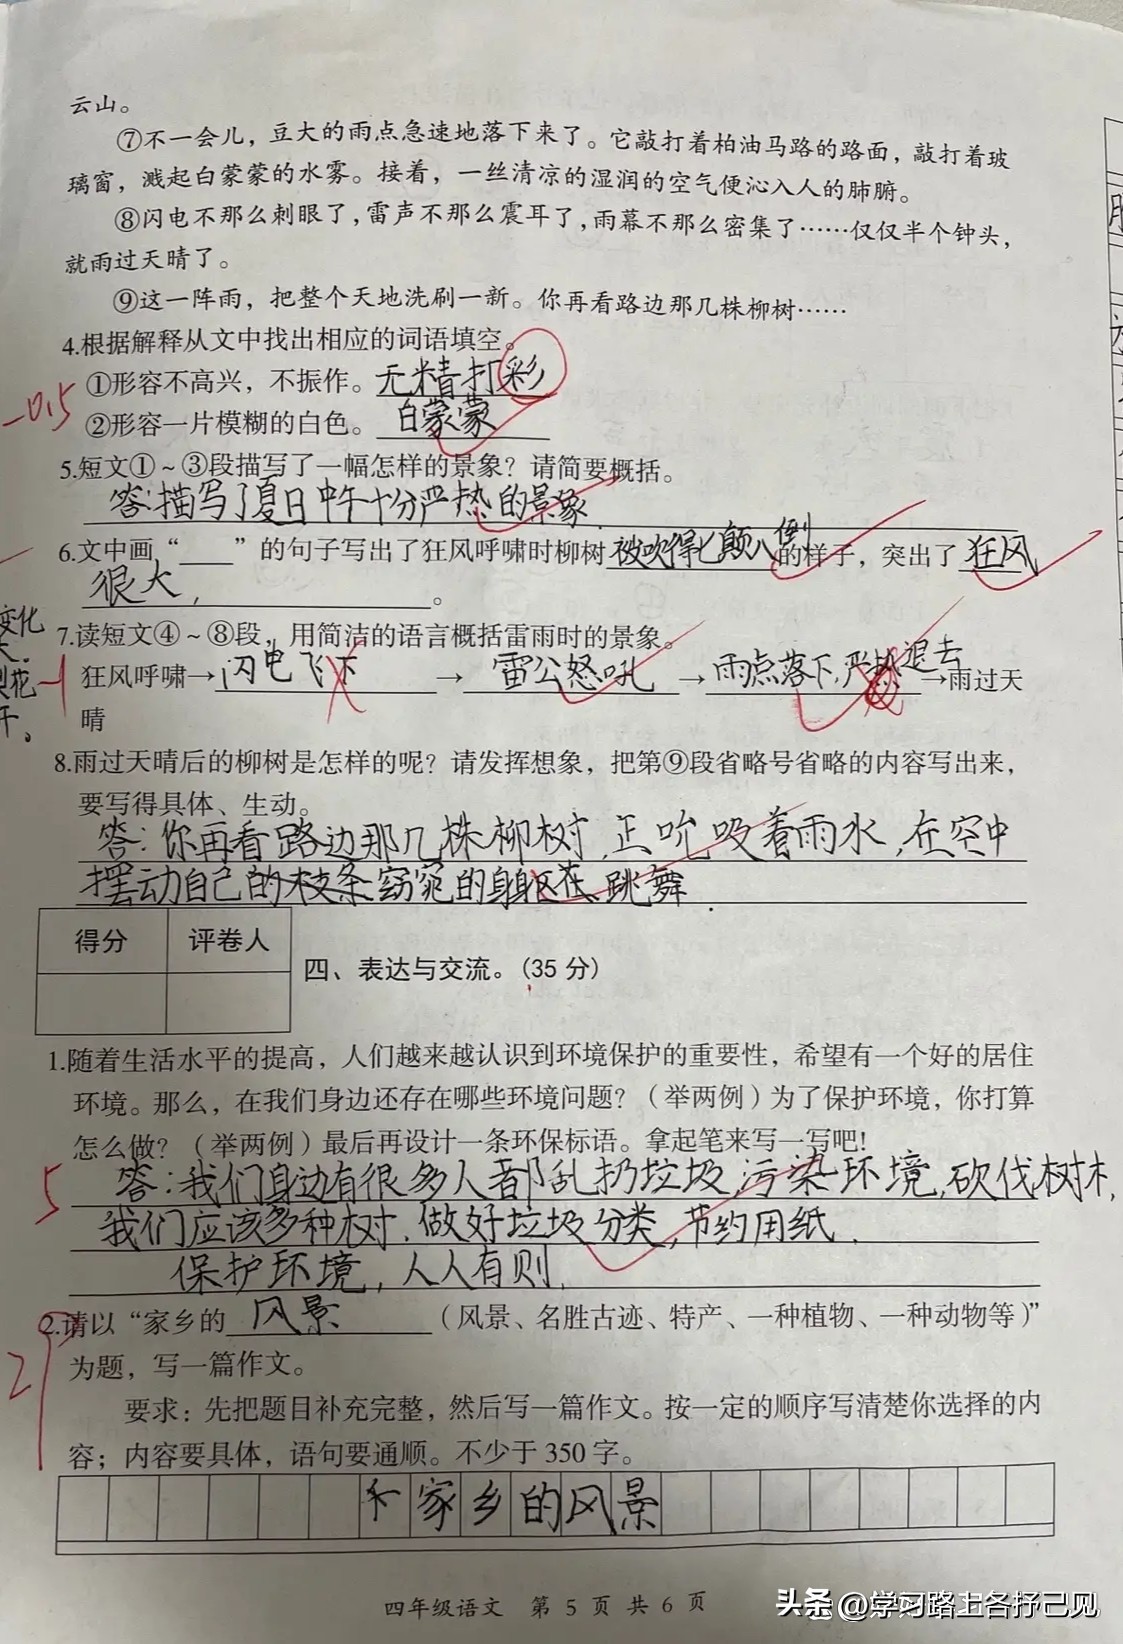 云山。
⑦不一会儿，豆大的雨点急速地落下来了。它敲打着柏油马路的路面，敲打着玻
璃窗，溅起白蒙蒙的水雾。接着，一丝清凉的湿润的空气便沁入人的肺腑。
⑧闪电不那么刺眼了，雷声不那么震耳了，雨幕不那么密集了……仅仅半个钟头，
就雨过天晴了。
⑨这一阵雨，把整个天地洗刷一新。你再看路边那几株柳树……
4.根据解释从文中找出相应的词语填空。
①形容不高兴，不振作。无精打彩
-0.5
②形容一片模糊的白色。白蒙蒙
5.短文①~③段描写了一幅怎样的景象？请简要概括。
答:描写了夏日中午十分严热的景象.
6.文中画“___”的句子写出了狂风呼啸时柳树被吹得七颠八倒的样子，突出了狂风
很大，。
变化
7.读短文④~⑧段，用简洁的语言概括雷雨时的景象。
狂风呼啸→闪电飞下→雷公怒吼→雨点落下,严热退去→雨过天
-1
晴
8.雨过天晴后的柳树是怎样的呢？请发挥想象，把第⑨段省略号省略的内容写出来，
要写得具体、生动。
答:你再看路边那几株柳树,正吮吸着雨水,在空中
摆动自己的枝条窈窕的身躯在跳舞.
得分 评卷人
四、表达与交流。(35 分)
1.随着生活水平的提高，人们越来越认识到环境保护的重要性，希望有一个好的居住
环境。那么，在我们身边还存在哪些环境问题？（举两例）为了保护环境，你打算
怎么做？（举两例）最后再设计一条环保标语。拿起笔来写一写吧！
5
答:我们身边有很多人都乱扔垃圾,污染环境,砍伐树木,
我们应该多种树.做好垃圾分类,节约用纸.
保护环境,人人有则.
2.请以“家乡的风景（风景、名胜古迹、特产、一种植物、一种动物等）”
29
为题，写一篇作文。
要求：先把题目补充完整，然后写一篇作文。按一定的顺序写清楚你选择的内
容；内容要具体，语句要通顺。不少于 350 字。
家乡的风景
四年级语文 第 5 页 共 6 页
头条 @学习路上各抒己见